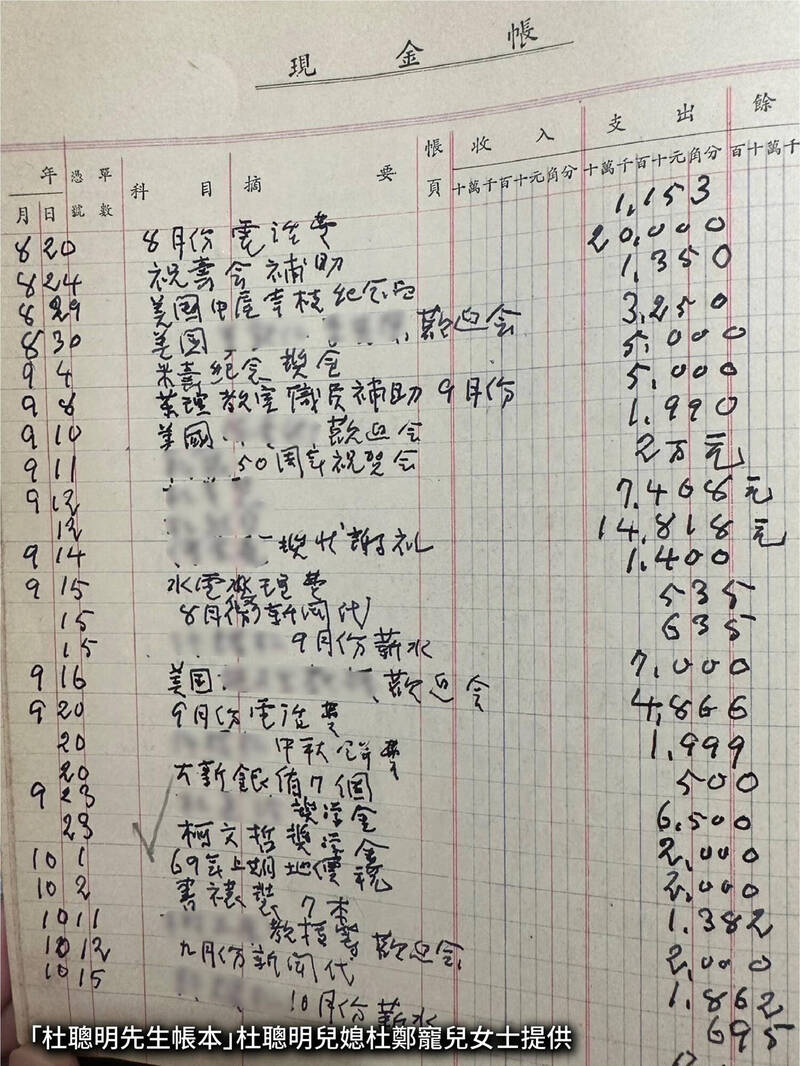 現金帳
年 憑單 科目 摘要 帳頁 收入 支出 餘
月 日 號數 十萬千百十元角分 十萬千百十元角分 百十萬千
8 20 8月份電話費 1,153
8 24 祝壽会補助 20,000
8 29 美国中尾幸枝紀念品 1,350
8 30 美国 歡迎会 3,250
9 4 米壽紀念獎金 5,000
9 8 藥理教室職員補助 9月份 5,000
9 10 美國 歡迎会 1,990
9 11 50周年祝賀会 2万元
9 12 7,408元
12 獎狀謝礼 14,818元
9 14 1,400
9 15 水電 理費 535
15 8月份新聞代 635
15 9月份薪水 7,000
9 16 美国 歡迎会 4,866
9 20 9月份電話費 1,999
20 中秋 費 500
20 大新銀 7個 6,500
9 23 獎学金 2,000
23 柯文哲獎学金 2,000
10 1 69年上期地價稅 1,382
10 2 書 裝 7本 2,000
10 11 教授 歡迎会 1,862
10 12 九月份新聞代 695
10 15 10月份薪水
「杜聰明先生帳本」杜聰明兒媳杜鄭寵兒女士提供